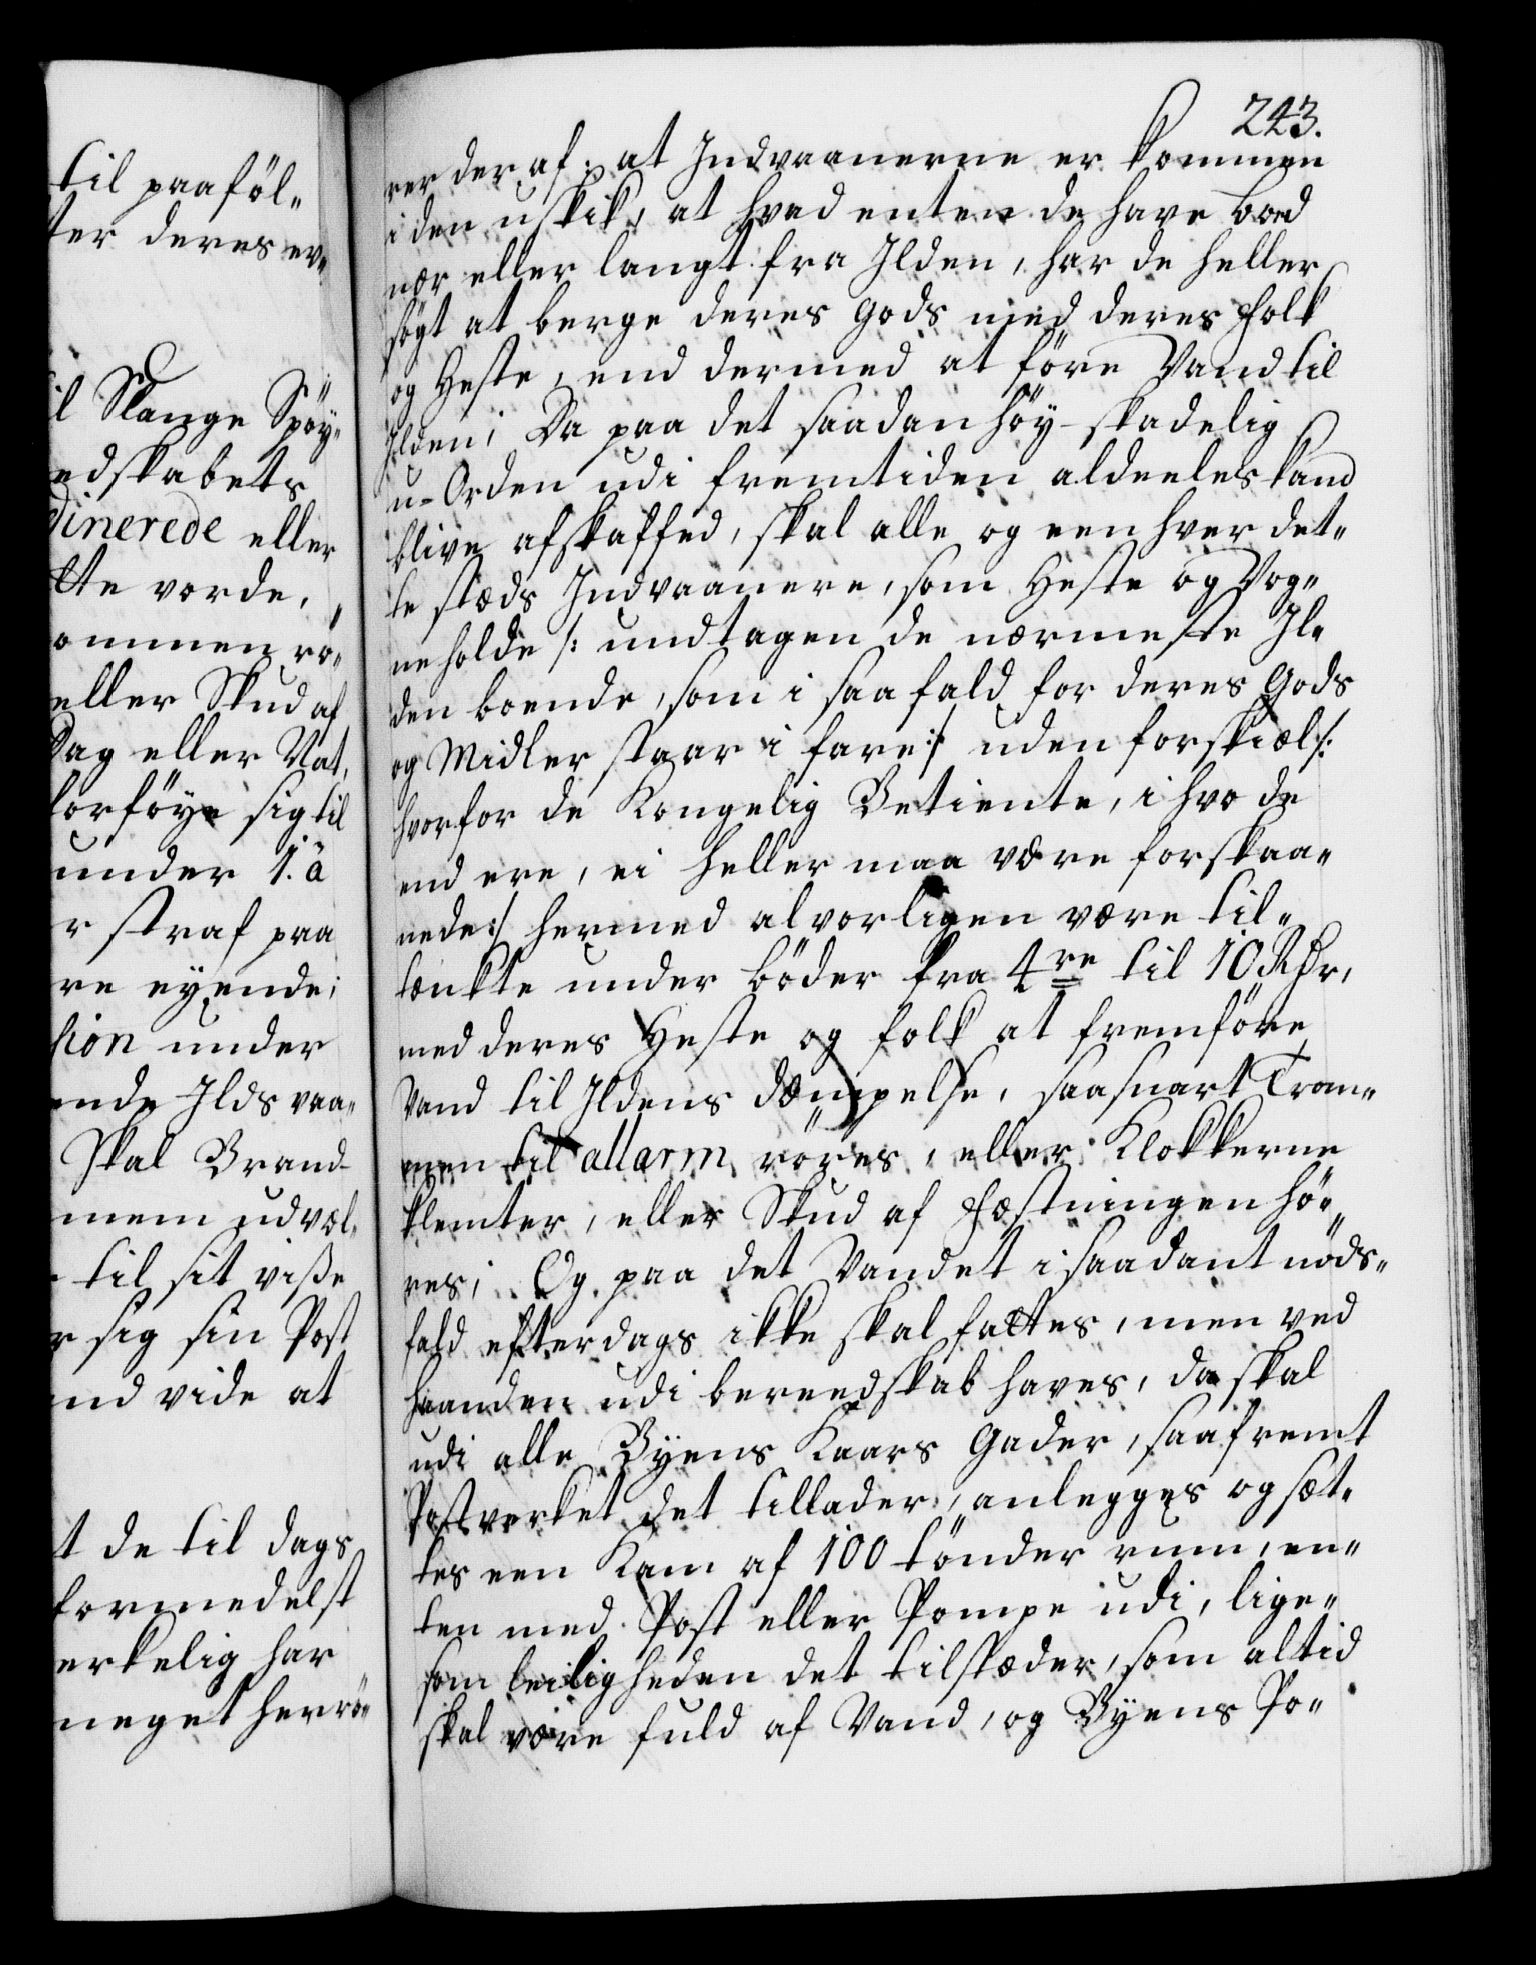 til paaföl„
ter deres ev„
il Slange Spöy„
edskabets
dinerede eller
tte vorde,
ommen rö„
eller Skud af
Dag eller Nat,
forföye sig til
under 1. à
r straf paa
re eyende;
tion under
ende Ilds vaa„
Skal Brand
mem udvæl„
til sit visse
r sig sin Post
nd vide at
t de til dags
formedelst
erkelig har
meget herrö„
243.
rer deraf, at Indvaanerne er kommen
i den uskik, at hvad enten de have boed
nær eller langt fra Ilden, har de heller
sögt at berge deres Gods med deres folk
og Heste, end dermed at före Vand til
Ilden; Da paa det saadan höy-skadelig
u-Orden udi fremtiden aldeeles kand
blive afskaffed, skal alle og een hver det„
te stæds Indvaanere, som Heste og Vog„
ne holde /: undtagen de nærmeste Il„
den boende, som i saa fald for deres Gods
og Midler staar i fare :/ uden forskiæl /:
hvorfor de Kongelig Betiente, i hvo de
end ere, ei heller maa være forskaa„
nede :/ hermed alvorligen være til„
tænkte under böder fra 4re til 10 Rdr,
med deres Heste og folk at fremföre
Vand til Ildens dæmpelse, saasnart Trom„
men til allarm röres, eller Klokkerne
klemter, eller Skud af Fæstningen hö„
res; Og paa det Vandet i saadant nöds„
fald efterdags ikke skal fattes, men ved
haanden udi bereedskab haves, da skal
udi alle Byens Kaars Gader, saafremt
Postverket det tillader, anlegges og sæt„
tes een Kam af 100 tönder rum, en„
ten med Post eller Pompe udi, lige„
som leiligheden det tilstæder, som altid
skal være fuld af Vand, og Byens Po„